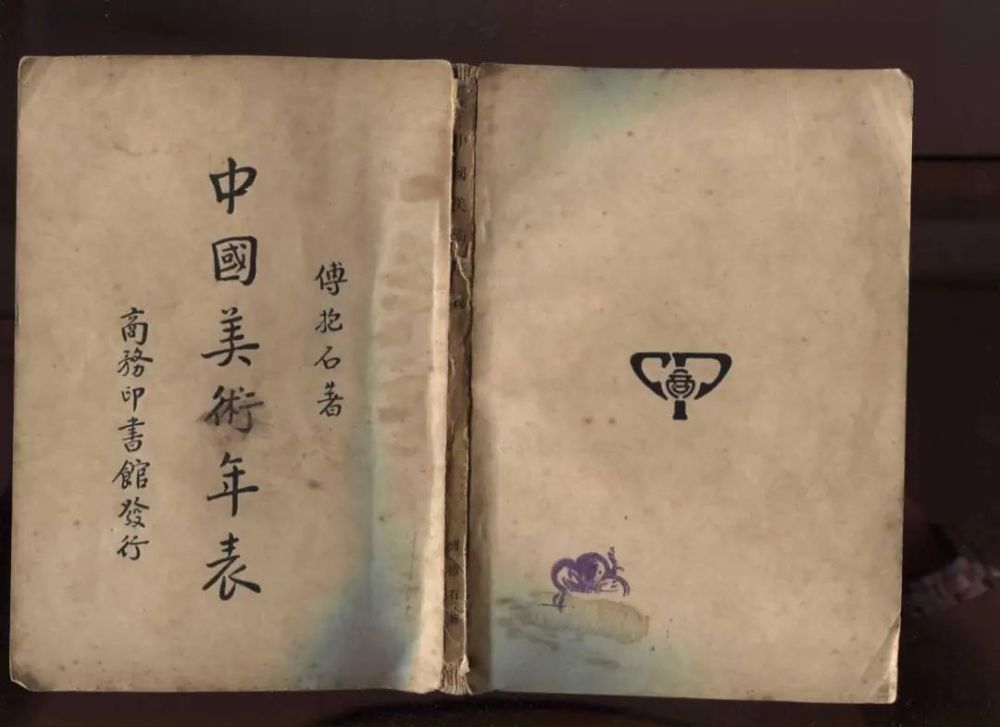 傅抱石著
中國美術年表
商務印書館發行
中國美術年表
商